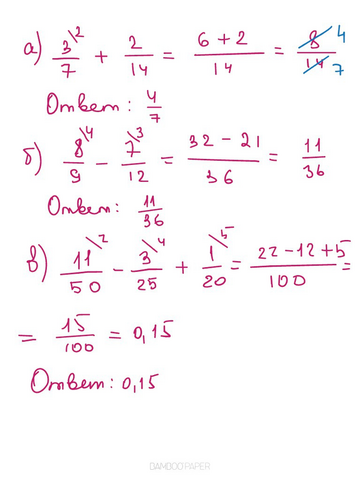 а) 3\2/7 + 2/14 = (6 + 2)/14 = 8/14 4/7
Ответ: 4/7
б) 8\4/9 − 7\3/12 = (32 − 21)/36 = 11/36
Ответ: 11/36
в) 11\2/50 − 3\4/25 + 1\5/20 = (22 − 12 + 5)/100 =
= 15/100 = 0,15
Ответ: 0,15
BAMBOO PAPER